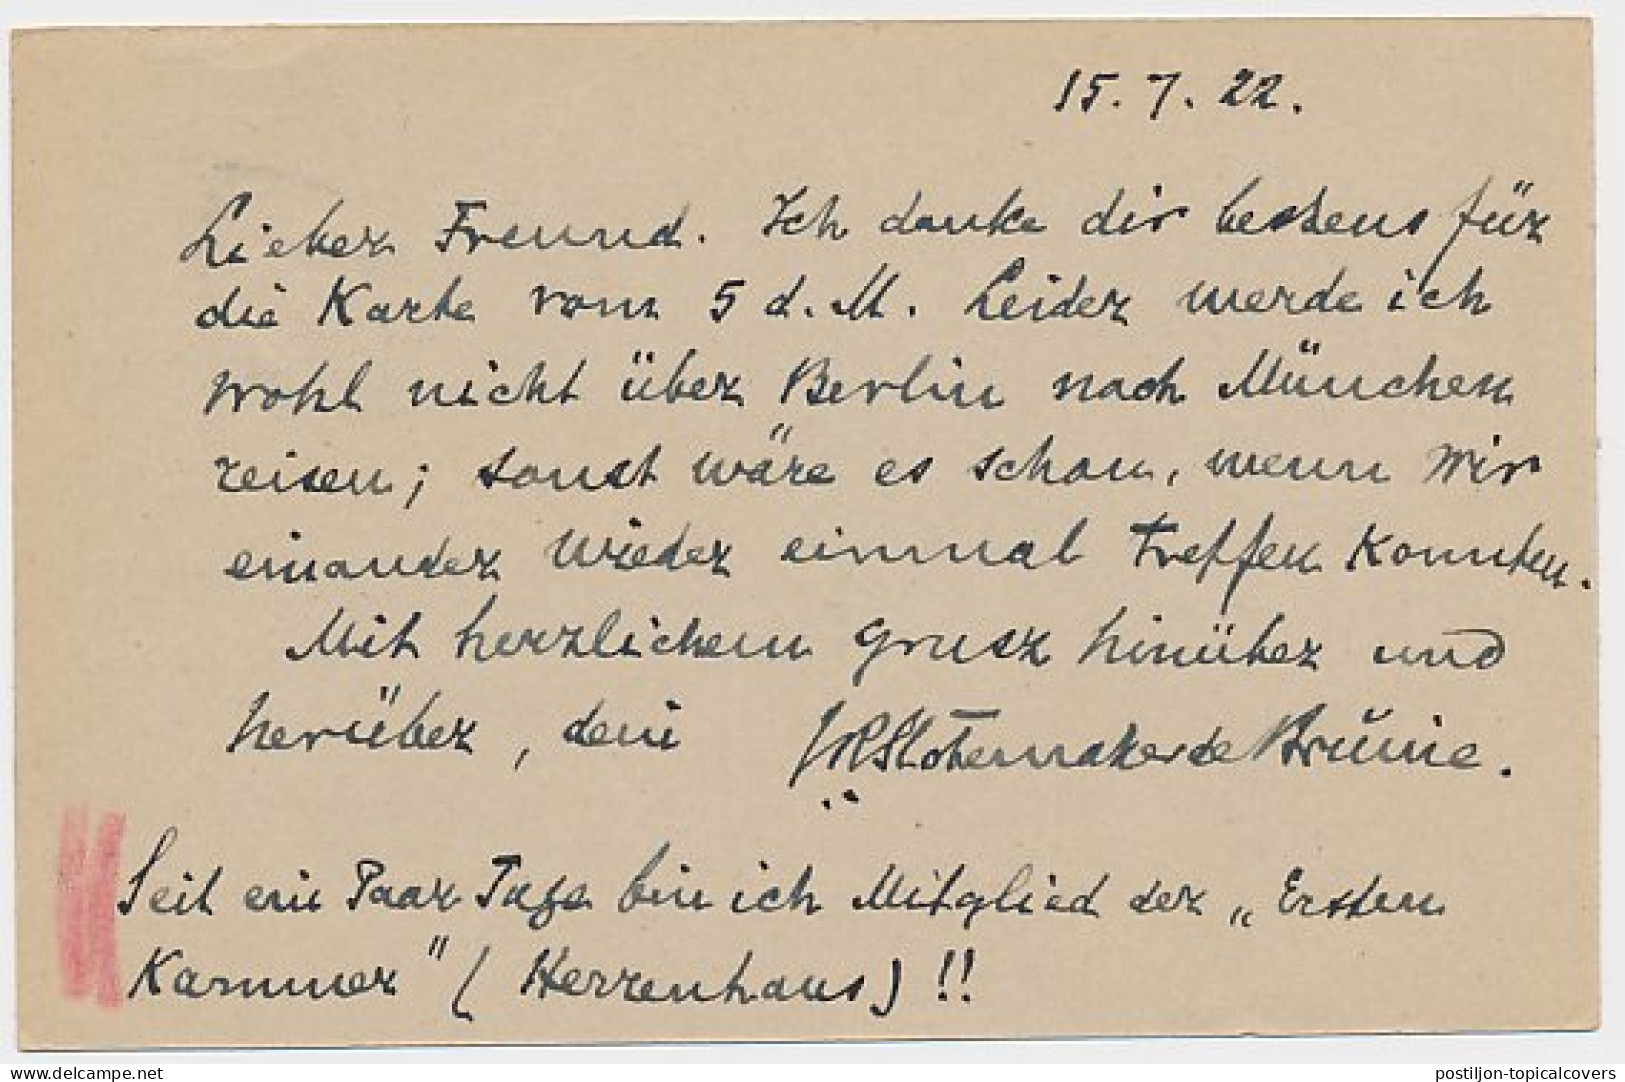 15.7.22.
Lieber Freund. Ich danke dir bestens für
die Karte vom 5 d. M. Leider werde ich
wohl nicht über Berlin nach München
reisen; sonst wäre es schon, wenn wir
einander wieder einmal treffen konnten.
Mit herzlichem Grusz hinüber und
herüber, dein JRSlotemaker de Bruïne.
Seit ein Paar Tage bin ich Mitglied der „Ersten
Kammer" (Herrenhaus) !!
www.delcampe.net
postiljon-topicalcovers